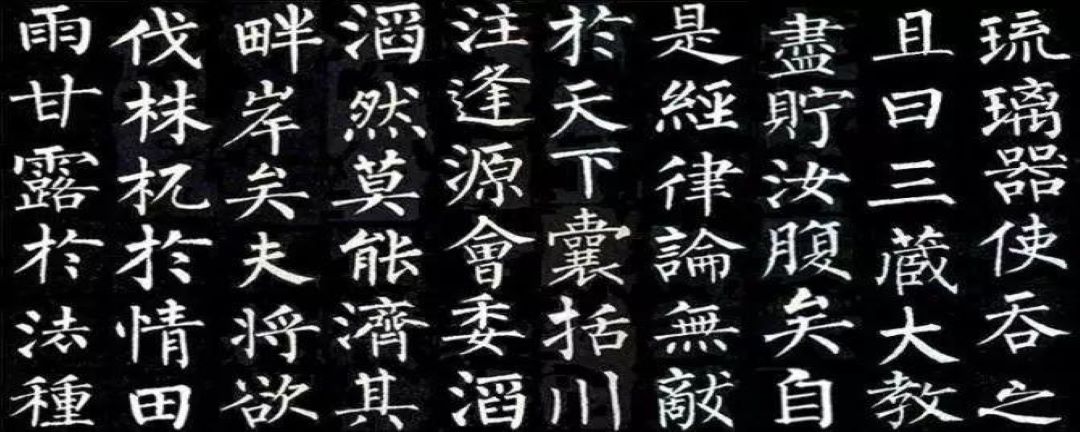 琉璃器使吞之
且曰三蔵大教
盡貯汝腹矣自
是經律論無敵
於天下囊括川
注逢源會委滔
滔然莫能濟其
畔岸矣夫將欲
伐株杌於情田
雨甘露於法種